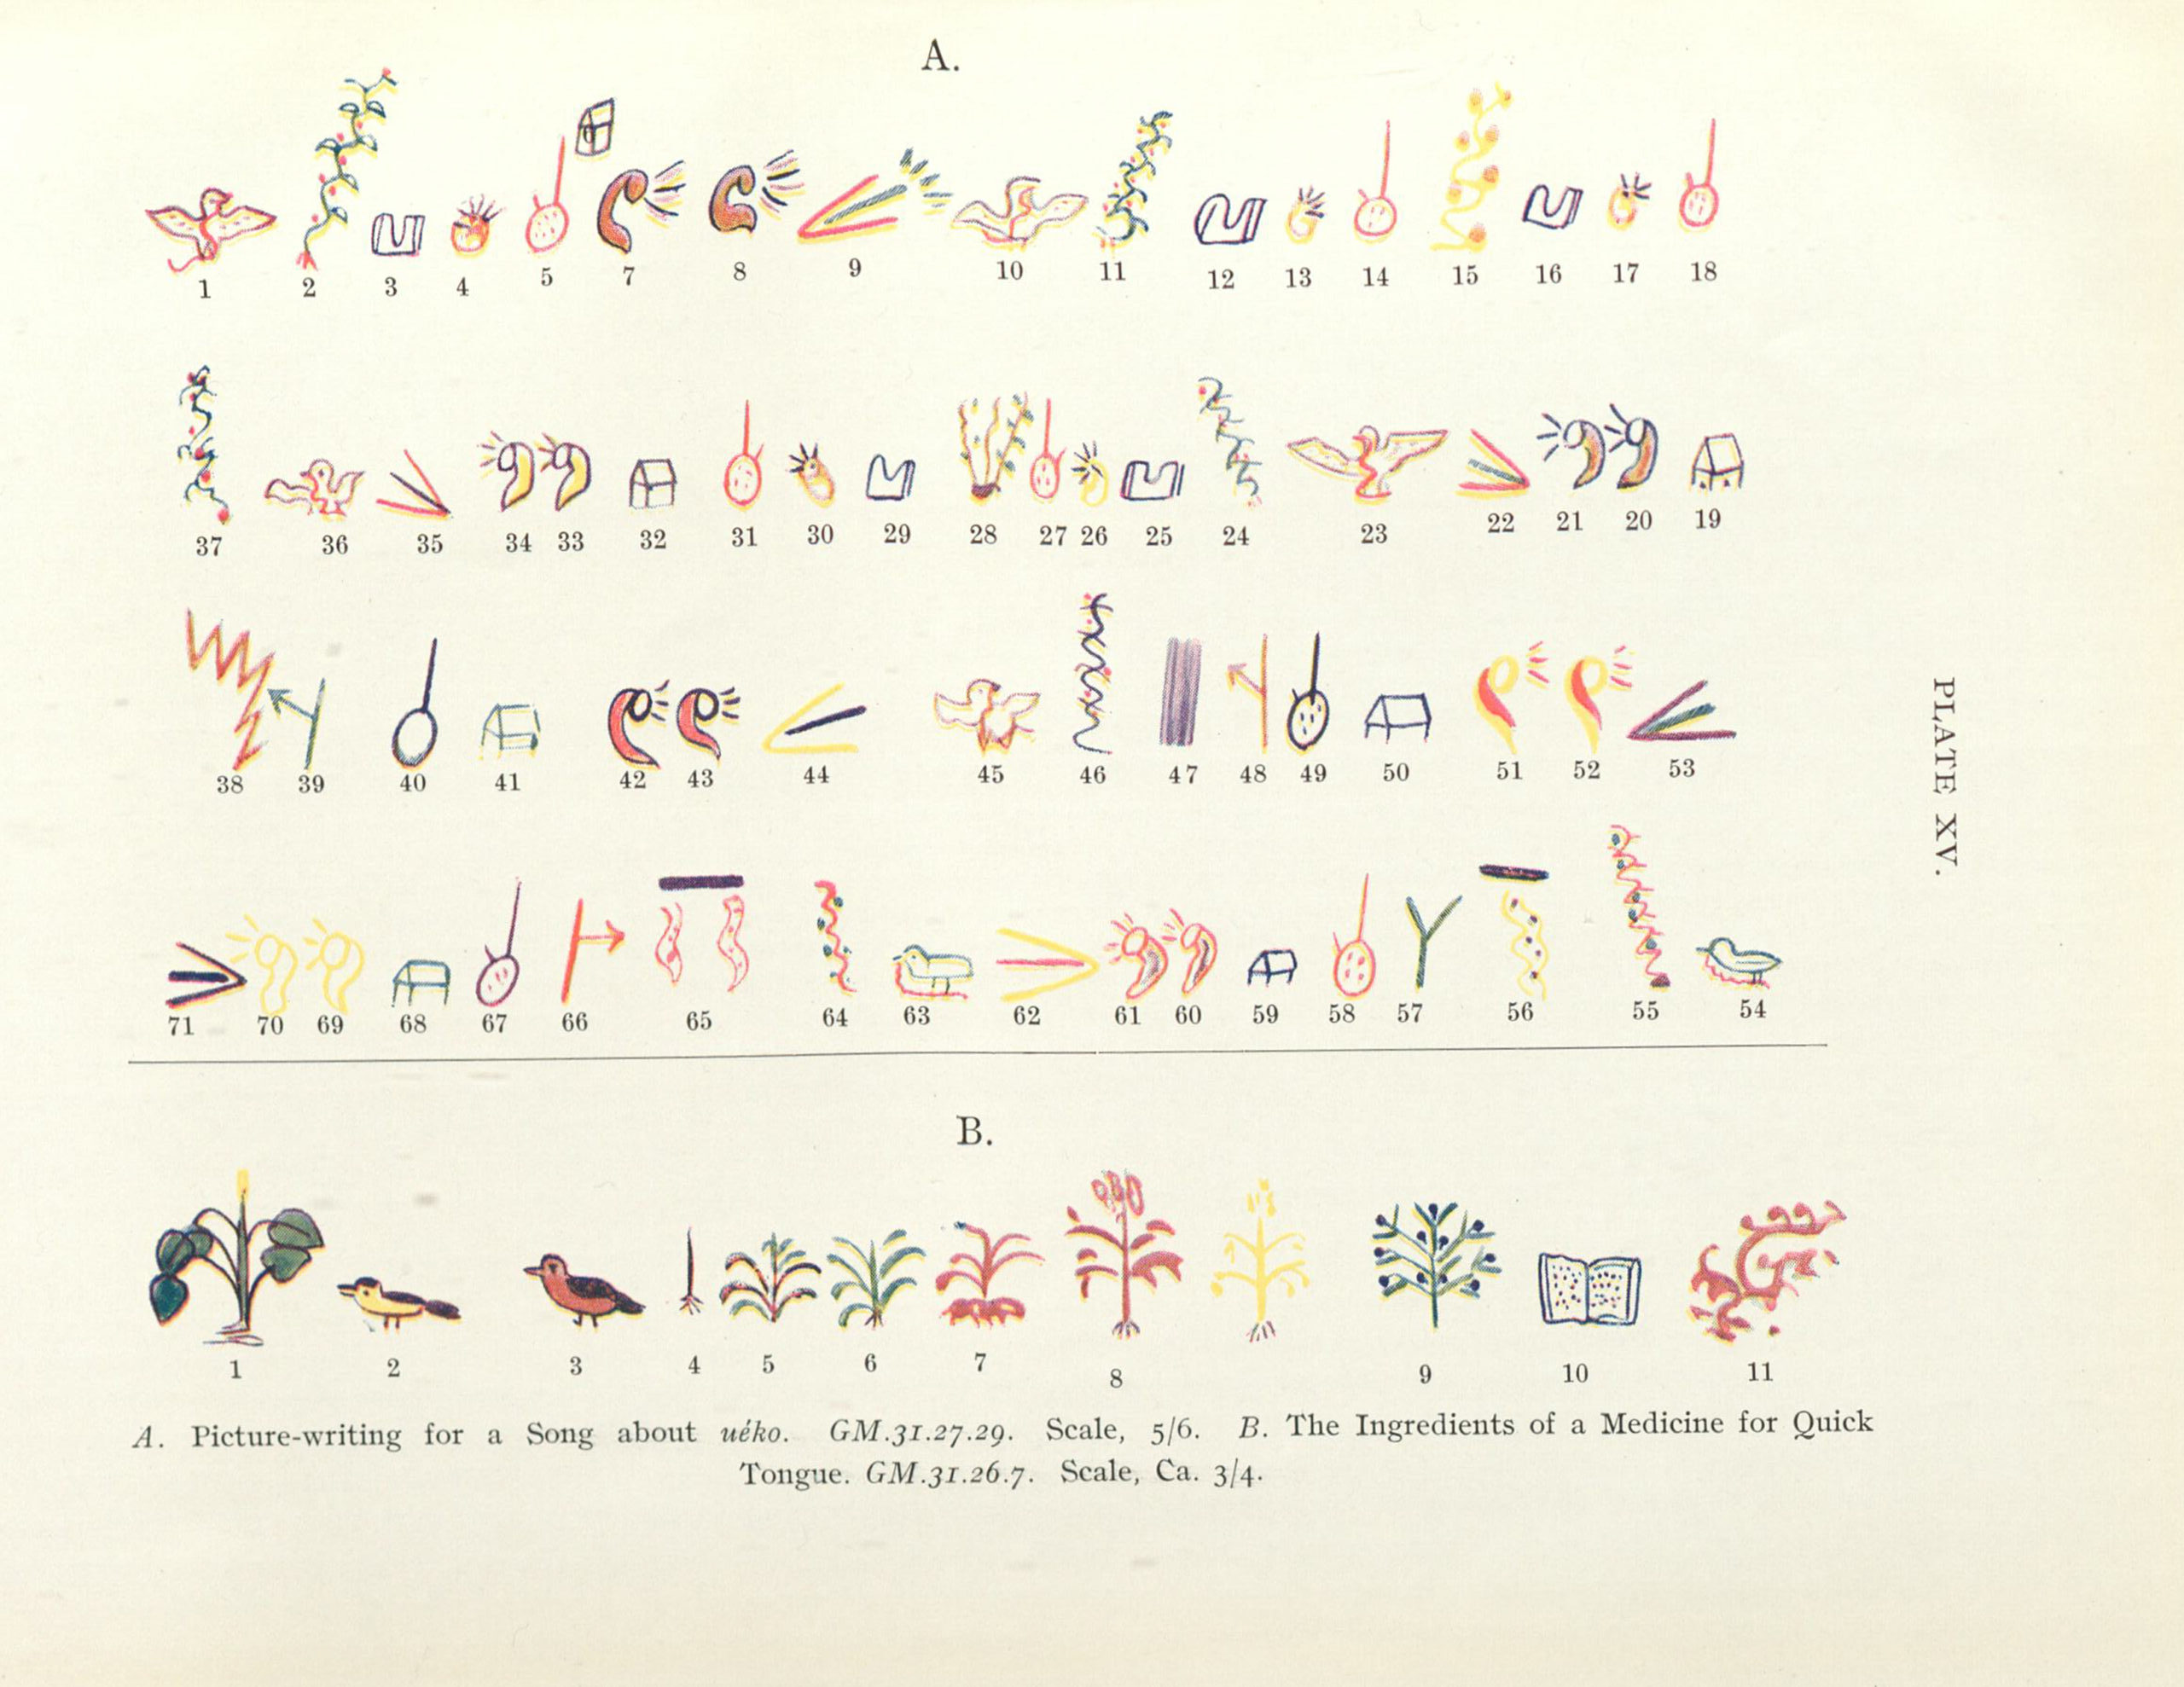 A.
1 2 3 4 5 7 8 9 10 11 12 13 14 15 16 17 18
37 36 35 34 33 32 31 30 29 28 27 26 25 24 23 22 21 20 19
38 39 40 41 42 43 44 45 46 47 48 49 50 51 52 53
71 70 69 68 67 66 65 64 63 62 61 60 59 58 57 56 55 54
PLATE XV.
B.
1 2 3 4 5 6 7 8 9 10 11
A. Picture-writing for a Song about uéko. GM.31.27.29. Scale, 5/6. B. The Ingredients of a Medicine for Quick
Tongue. GM.31.26.7. Scale, Ca. 3/4.